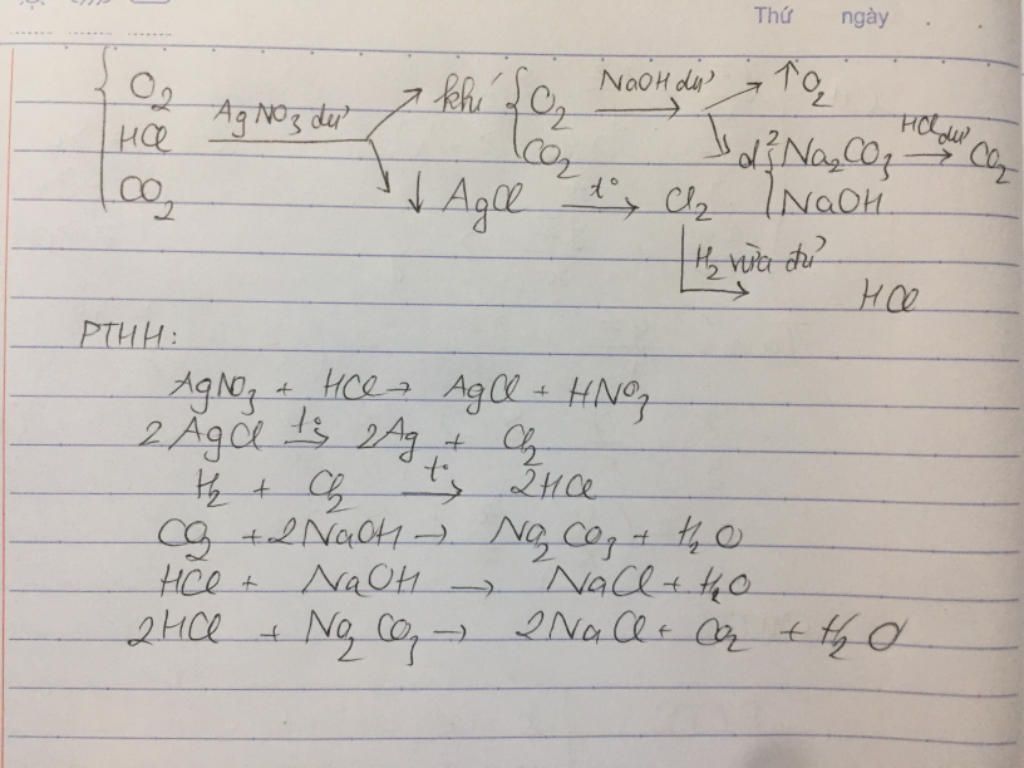 Thứ ngày
{ O₂ HCl CO₂ AgNO₃ dư → ↗ khí { O₂ CO₂ NaOH dư → ↗ ↑O₂
↘ d² { Na₂CO₃ NaOH HCl dư → CO₂
↘ ↓ AgCl t° → Cl₂
H₂ vừa đủ → HCl
PTHH:
AgNO₃ + HCl → AgCl + HNO₃
2AgCl t° → 2Ag + Cl₂
H₂ + Cl₂ t° → 2HCl
CO₂ + 2NaOH → Na₂CO₃ + H₂O
HCl + NaOH → NaCl + H₂O
2HCl + Na₂CO₃ → 2NaCl + CO₂ + H₂O